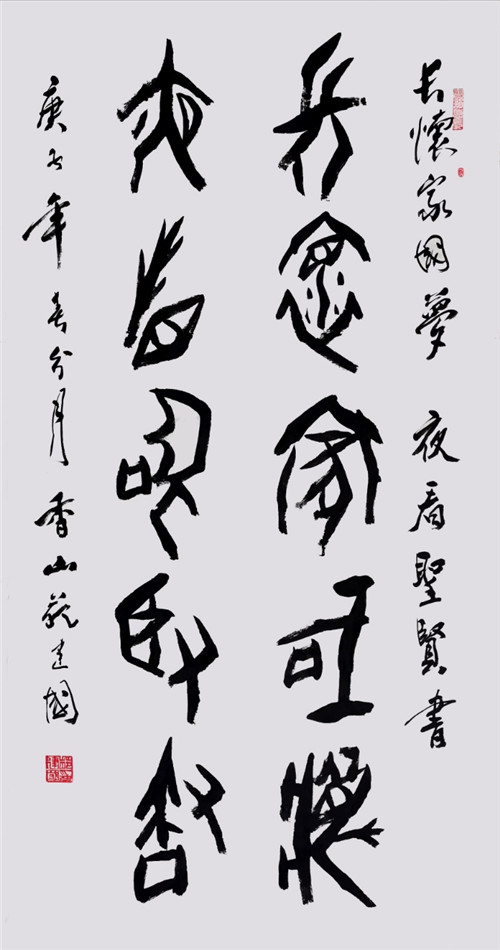 長懷家國夢 夜看聖賢書
長懷家國夢
夜看聖賢書
庚子年春分月 香山建國